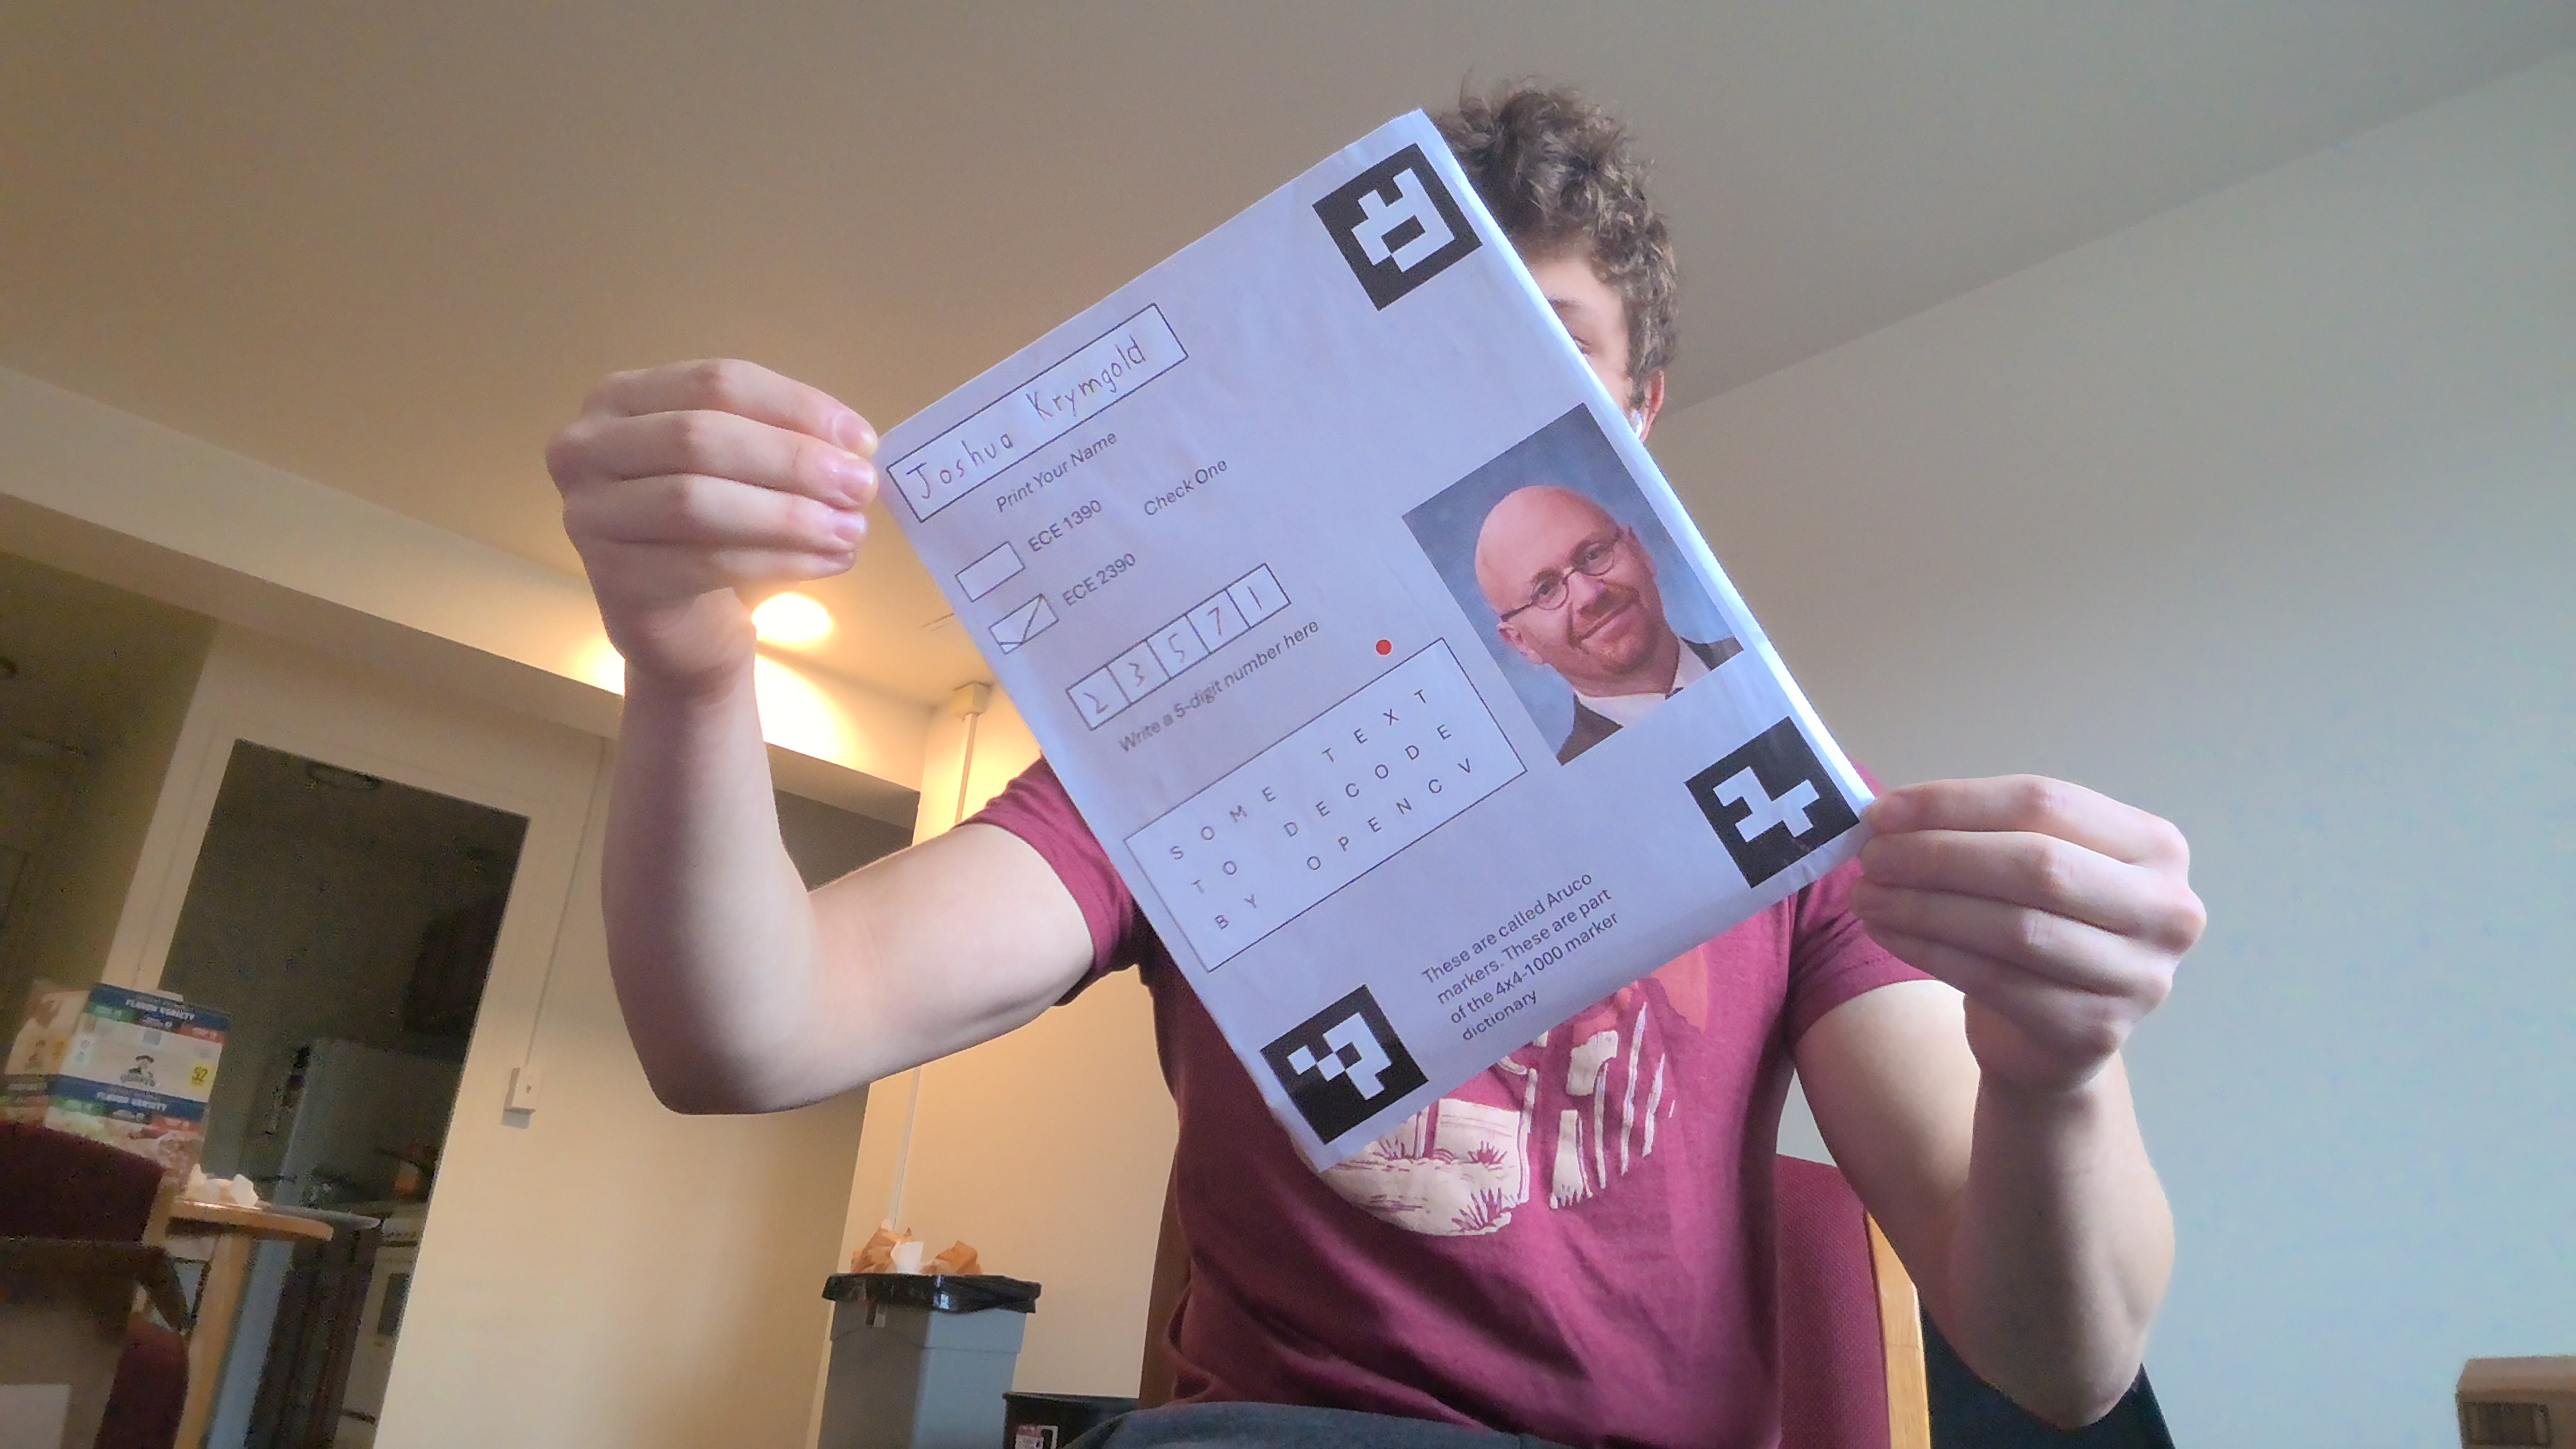 Joshua Krymgold
Print Your Name
ECE 1390
Check One
ECE 2390
2 3 5 7 1
Write a 5-digit number here
SOME TEXT
TO DECODE
BY OPENCV
These are called Aruco
markers. These are part
of the 4x4-1000 marker
dictionary
FLAVOR VARIETY
QUAKER
52
FLAVOR VARIETY